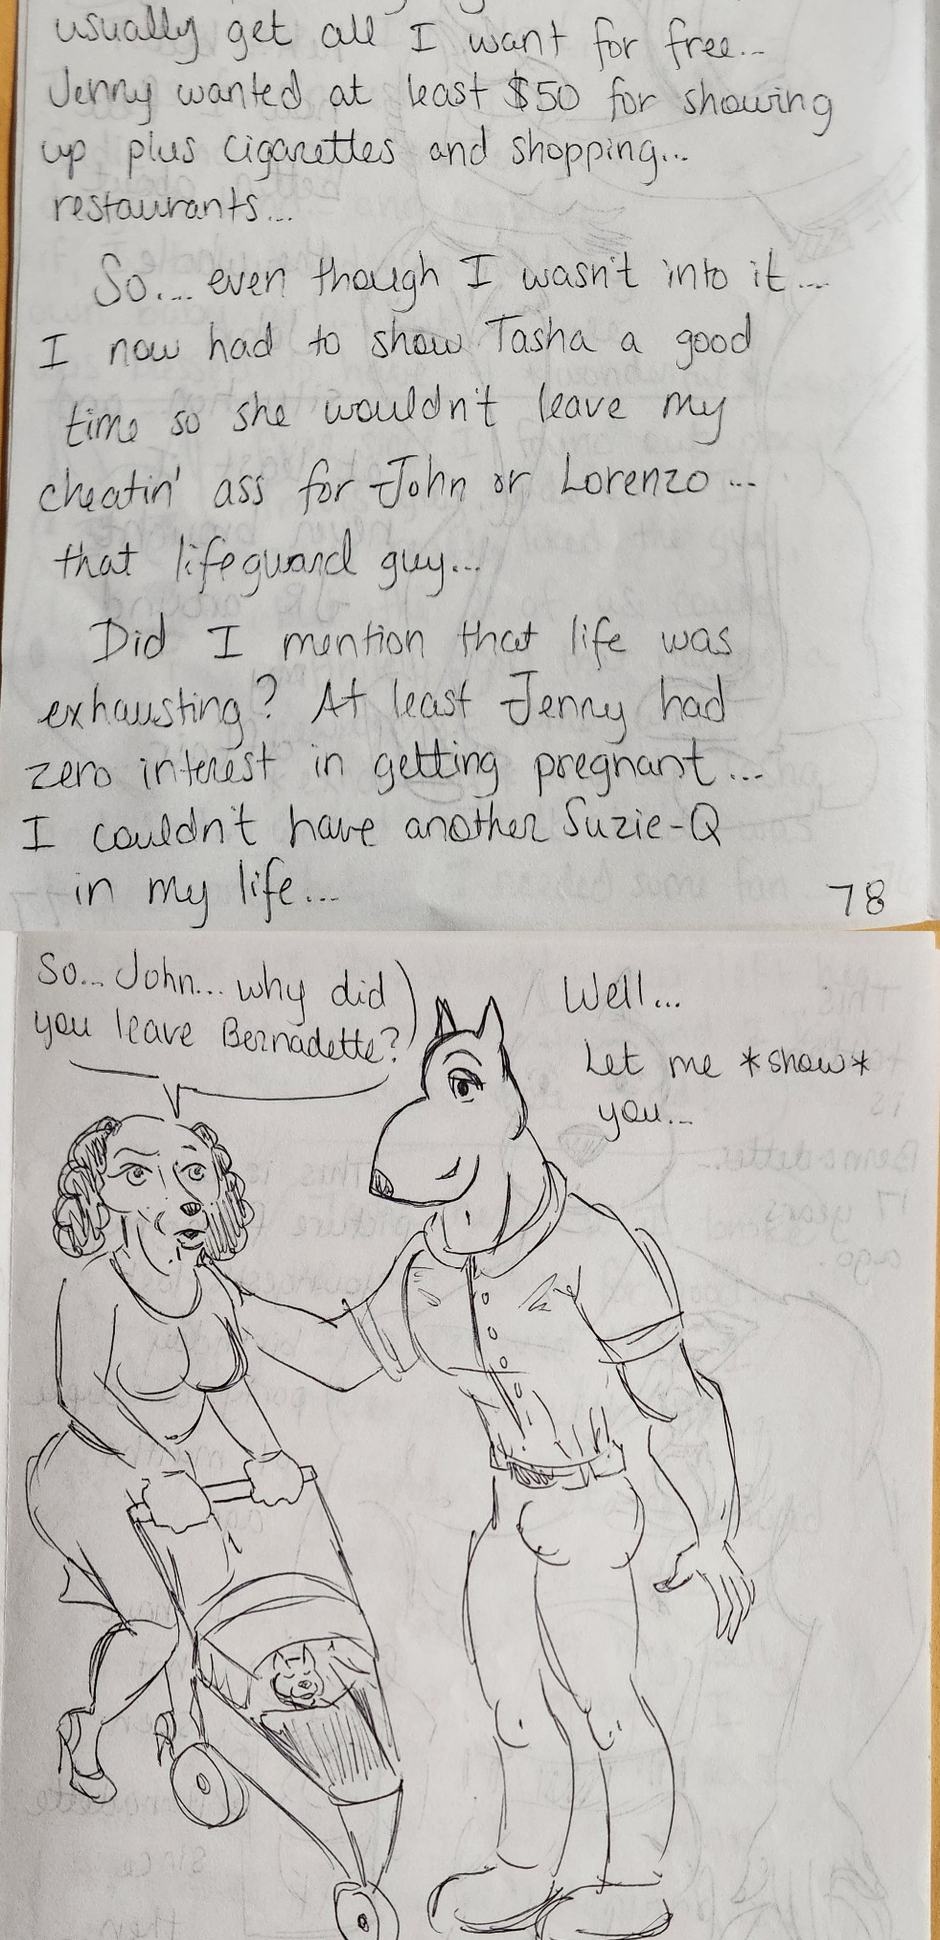 usually get all I want for free...
Jenny wanted at least $50 for showing
up plus cigarettes and shopping...
restaurants...
So.... even though I wasn't into it....
I now had to show Tasha a good
time so she wouldn't leave my
cheatin' ass for John or Lorenzo...
that lifeguard guy...
Did I mention that life was
exhausting? At least Jenny had
zero interest in getting pregnant...
I couldn't have another Suzie-Q
in my life...
78
So... John... why did
you leave Bernadette?
Well...
Let me *show*
you...